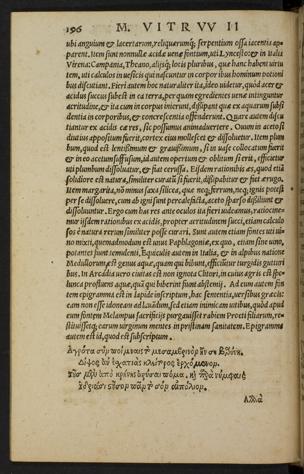 196 M. VITRVV II
ubi anguium & lacertarum, reliquorumq; serpentium ossa iacentia ap
parent. Item sunt nonnullæ acidæ uenæ fontium, uti Lyncesto & in Italia
Virena: Campania, Theano, alijsq; locis pluribus, quæ hanc habent uirtu
tem, uti calculos in uesicis qui nascuntur in corporibus hominum potioni
bus discutiant. Fieri autem hoc naturaliter ita, ideo uidetur, quod acer &
acidus succus subest in ea terra, per quam egredientes uenæ intinguntur
acritudine, & ita cum in corpus inierunt, dissipant quæ ex aquarum subsi
dentia in corporibus, & concrescentia offenderunt. Quare autem discu
tiantur ex acidis eæ res, sic possumus animaduertere. Ouum in aceto si
diutius appositum fuerit, cortex eius mollescet & dissoluetur. Item plum
bum, quod est lentissimum & grauissimum, si in uase collocatum fuerit
& in eo acetum suffusum, id autem opertum & oblitum si erit, efficietur
uti plumbum dissoluatur, & fiat cerussa. Eisdem rationibus æs, quod etiã
solidiore est natura, similiter curatũ si fuerit, dissipabitur & fiet ærugo.
Item margarita, nõ minus saxa silicea, quæ neq; ferrum, neq; ignis potest
per se dissoluere, cum ab igni sunt percalefacta, aceto sparso dissiliunt &
dissoluuntur. Ergo cum has res ante oculos ita fieri uideamus, ratiocine-
mur ijsdem rationibus ex acidis, propter acritudinem succi, etiam calculo
sos è natura rerum similiter posse curari. Sunt autem etiam fontes uti ui-
no mixti, quemadmodum est unus Paphlagoniæ, ex quo, etiam sine uino,
potantes fiunt temulenti. Equiculis autem in Italia, & in alpibus natione
Medullorum, est genus aquæ, quam qui bibunt, efficiuntur turgidis gutturi
bus. In Arcadia uero ciuitas est non ignota Clitori, in cuius agris est spe-
lunca profluens aqua, quã qui biberint fiunt abstemij. Ad eum autem fon
tem epigramma est in lapide inscriptum, hac sententia, uersibus græcis:
eam non esse idoneam ad lauãdum, sed etiam inimicam uitibus, quòd apud
eum fontem Melampus sacrificijs purgauisset rabiem Proeti filiarum, re-
stituissetq; earum uirginum mentes in pristinam sanitatem. Epigramma
autem est id, quod est subscriptum.